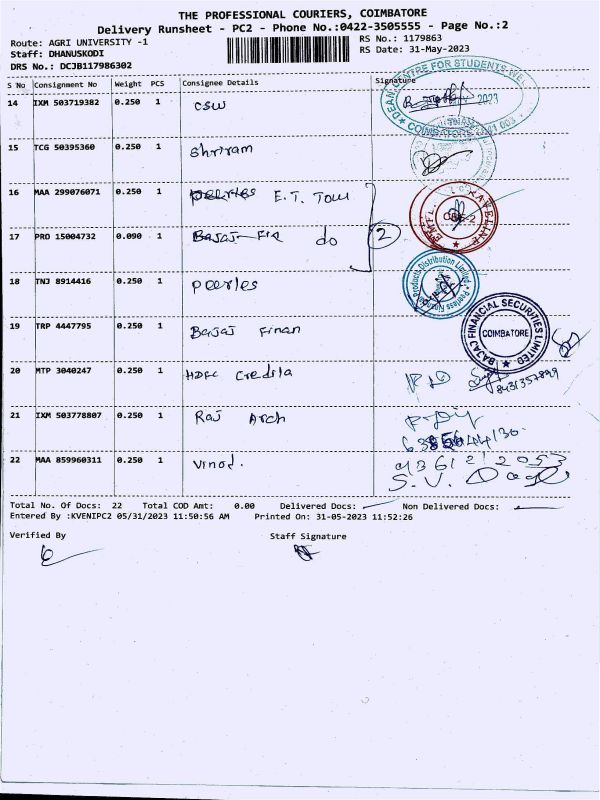 THE PROFESSIONAL COURIERS, COIMBATORE
Delivery Runsheet - PC2 - Phone No.:0422-3505555 - Page No.:2
Route: AGRI UNIVERSITY -1
Staff: DHANUSKODI
DRS No.: DCJB117986302
RS No.: 1179863
RS Date: 31-May-2023
S No Consignment No Weight PCS Consignee Details Signature
14 IXM 503719382 0.250 1 CSW
DEAN, CENTRE FOR STUDENTS WEL
2023
COIMBATORE 641 003
15 TCG 50395360 0.250 1 Shriram
16 MAA 299076071 0.250 1 Peerles E.T. Tow
17 PRO 15004732 0.090 1 Bajaj-Fin do 2
18 TNJ 8914416 0.250 1 Peerles
Products Distribution Limited
19 TRP 4447795 0.250 1 Bajaj Finan
BAJAJ FINANCIAL SECURITIES LIMITED
COIMBATORE
20 MTP 3040247 0.250 1 HDFC Credila
21 IXM 503778807 0.250 1 Raj Arch
22 MAA 859960311 0.250 1 Vinod.
9361212053
S.V.
Total No. Of Docs: 22 Total COD Amt: 0.00 Delivered Docs: Non Delivered Docs:
Entered By :KVENIPC2 05/31/2023 11:50:56 AM Printed On: 31-05-2023 11:52:26
Verified By Staff Signature